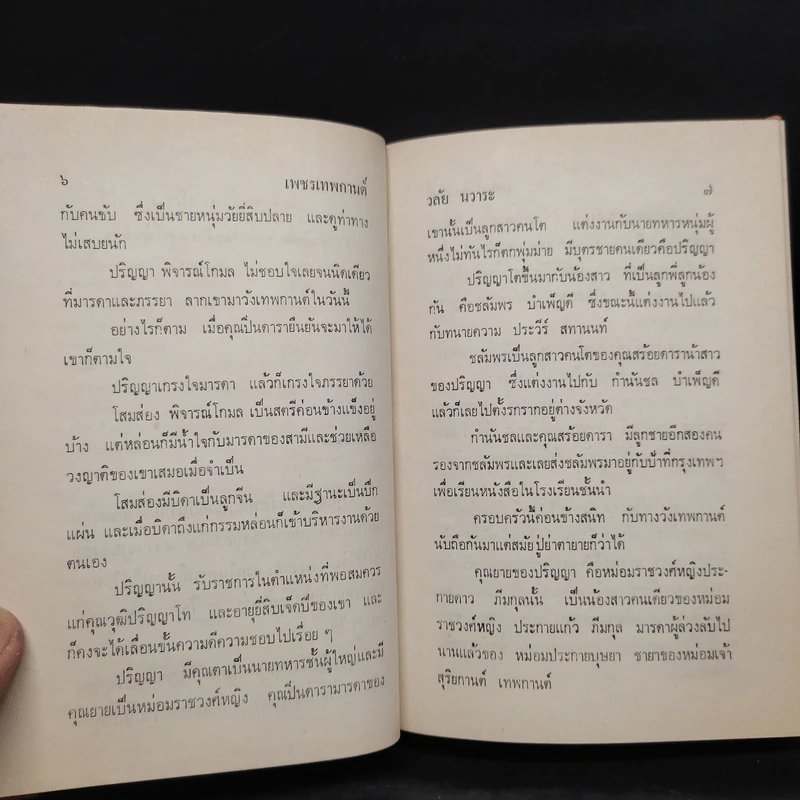 ๖ เพชรเทพกานต์
กับคนขับ ซึ่งเป็นชายหนุ่มวัยยี่สิบปลาย และดูท่าทาง
ไม่เสบยนัก
ปริญญา พิจารณ์โกมล ไม่ชอบใจเลยจนนิดเดียว
ที่มารดาและภรรยา ลากเขามาวังเทพกานต์ในวันนี้
อย่างไรก็ตาม เมื่อคุณปิ่นดารายืนยันจะมาให้ได้
เขาก็ตามใจ
ปริญญาเกรงใจมารดา แล้วก็เกรงใจภรรยาด้วย
โสมส่อง พิจารณ์โกมล เป็นสตรีค่อนข้างแข็งอยู่
บ้าง แต่หล่อนก็มีน้ำใจกับมารดาของสามีและช่วยเหลือ
วงญาติของเขาเสมอเมื่อจำเป็น
โสมส่องมีบิดาเป็นลูกจีน และมีฐานะเป็นปึก
แผ่น และเมื่อบิดาถึงแก่กรรมหล่อนก็เข้าบริหารงานด้วย
ตนเอง
ปริญญานั้น รับราชการในตำแหน่งที่พอสมควร
แก่คุณวุฒิปริญญาโท และอายุยี่สิบเจ็ดปีของเขา และ
ก็คงจะได้เลื่อนขั้นความดีความชอบไปเรื่อย ๆ
ปริญญา มีคุณตาเป็นนายทหารชั้นผู้ใหญ่และมี
คุณยายเป็นหม่อมราชวงศ์หญิง คุณปิ่นดารามารดาของ
วลัย นวาระ ๗
เขานั้นเป็นลูกสาวคนโต แต่งงานกับนายทหารหนุ่มผู้
หนึ่งไม่ทันไรก็ตกพุ่มม่าย มีบุตรชายคนเดียวคือปริญญา
ปริญญาโตขึ้นมากับน้องสาว ที่เป็นลูกพี่ลูกน้อง
กัน คือชลัมพร บำเพ็ญดี ซึ่งขณะนี้แต่งงานไปแล้ว
กับทนายความ ประวีร์ สทานนท์
ชลัมพรเป็นลูกสาวคนโตของคุณสร้อยดาราน้าสาว
ของปริญญา ซึ่งแต่งงานไปกับ กำนันชล บำเพ็ญดี
แล้วก็เลยไปตั้งรกรากอยู่ต่างจังหวัด
กำนันชลและคุณสร้อยดารา มีลูกชายอีกสองคน
รองจากชลัมพรและเลยส่งชลัมพรมาอยู่กับป้าที่กรุงเทพฯ
เพื่อเรียนหนังสือในโรงเรียนชั้นนำ
ครอบครัวนี้ค่อนข้างสนิท กับทางวังเทพกานต์
นับถือกันมาแต่สมัยปู่ย่าตายายก็ว่าได้
คุณยายของปริญญา คือหม่อมราชวงศ์หญิงประ-
กายดาว ภีมกุลนั้น เป็นน้องสาวคนเดียวของหม่อม
ราชวงศ์หญิง ประกายแก้ว ภีมกุล มารดาผู้ล่วงลับไป
นานแล้วของ หม่อมประกายบุษยา ชายาของหม่อมเจ้า
สุริยกานต์ เทพกานต์